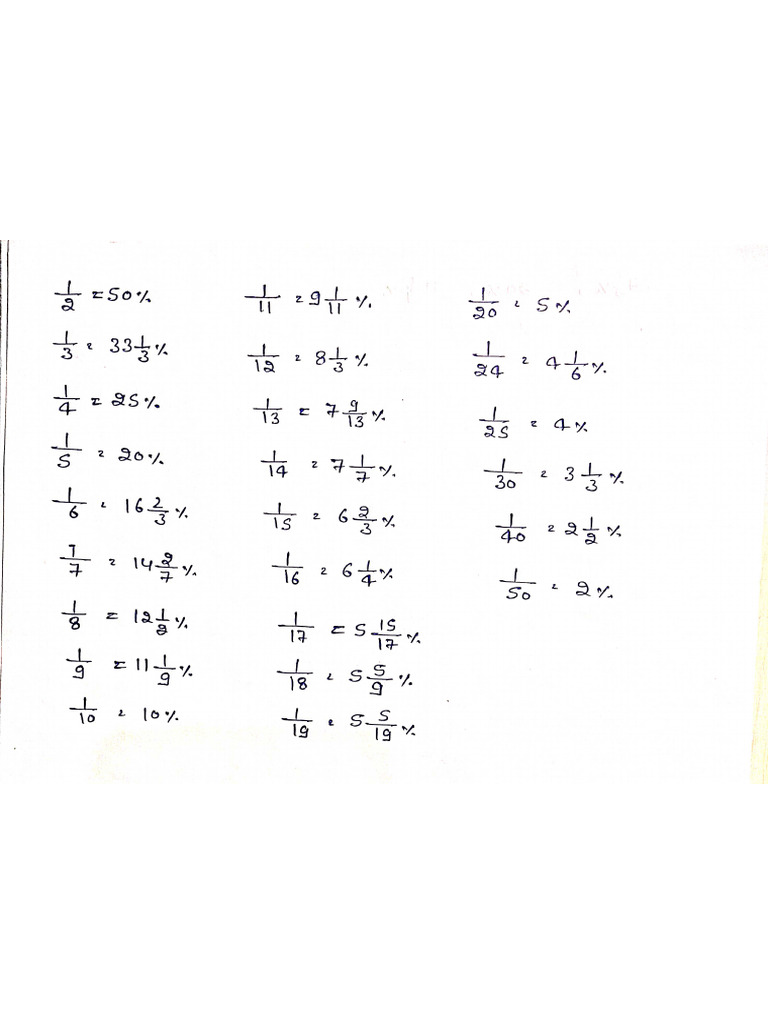 1/2 = 50%
1/3 = 33 1/3 %
1/4 = 25%
1/5 = 20%
1/6 = 16 2/3 %
1/7 = 14 2/7 %
1/8 = 12 1/2 %
1/9 = 11 1/9 %
1/10 = 10%
1/11 = 9 1/11 %
1/12 = 8 1/3 %
1/13 = 7 9/13 %
1/14 = 7 1/7 %
1/15 = 6 2/3 %
1/16 = 6 1/4 %
1/17 = 5 15/17 %
1/18 = 5 5/9 %
1/19 = 5 5/19 %
1/20 = 5%
1/24 = 4 1/6 %
1/25 = 4%
1/30 = 3 1/3 %
1/40 = 2 1/2 %
1/50 = 2%